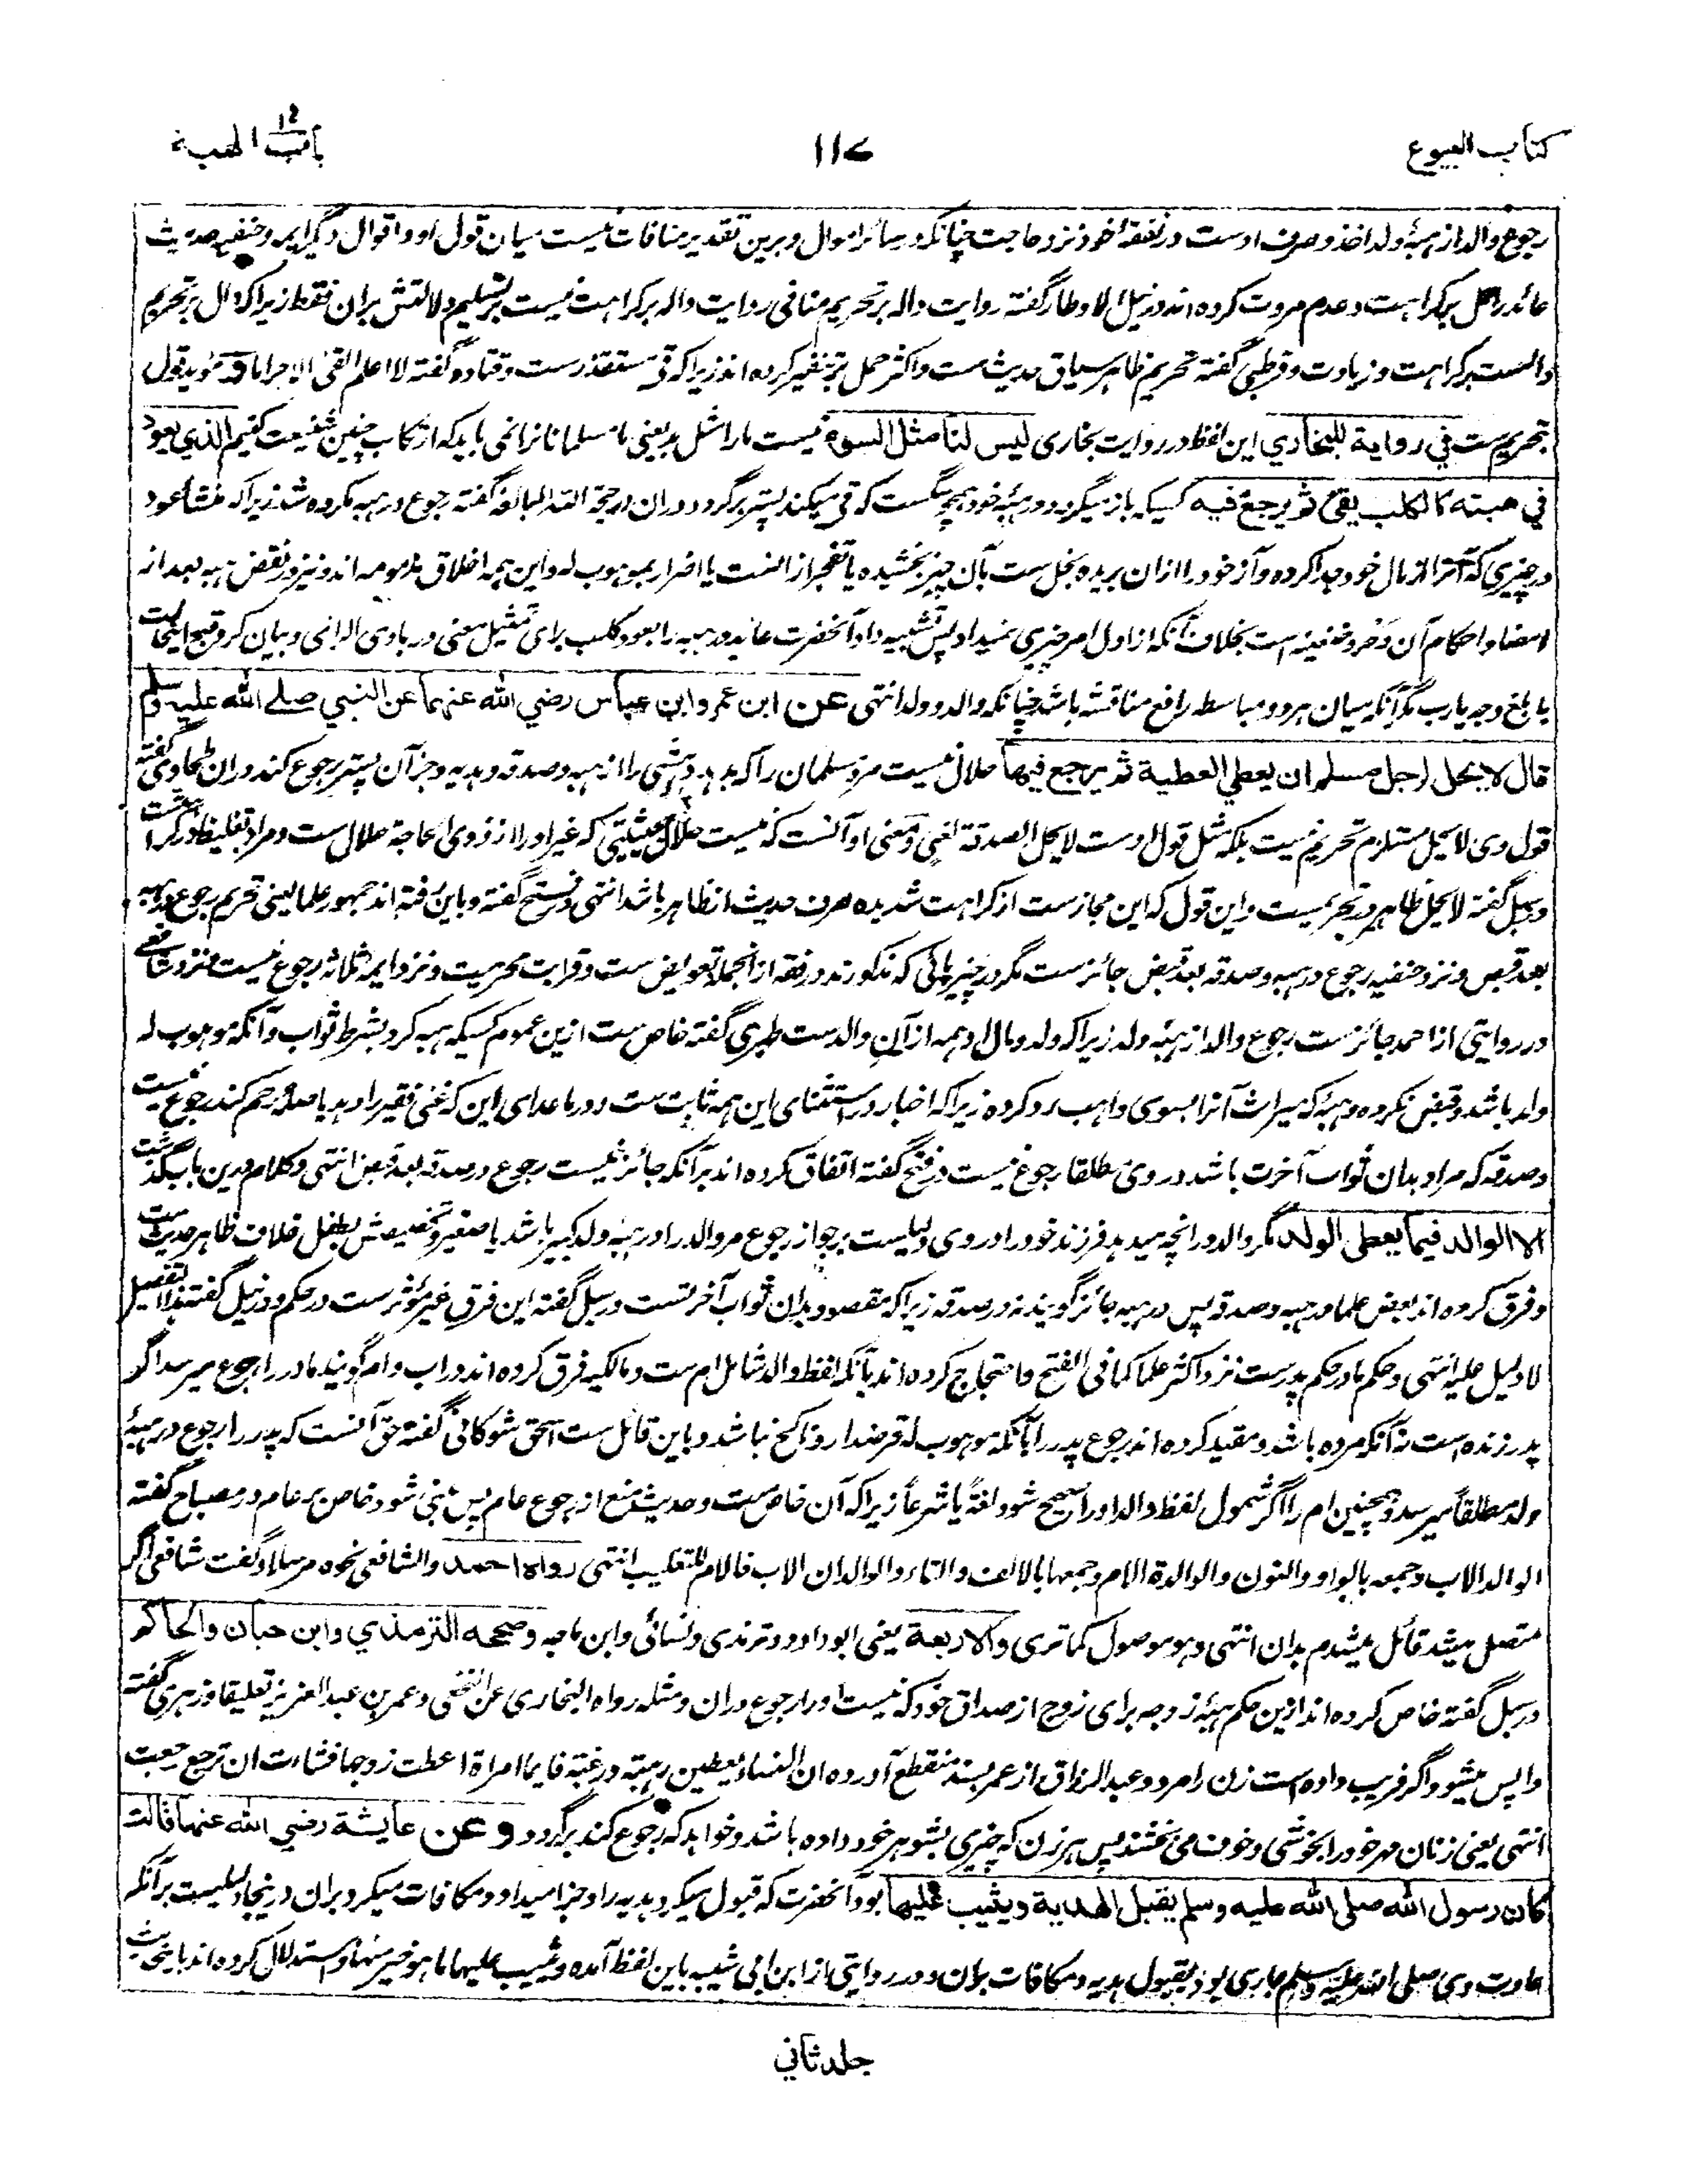 کتاب البیوع
۱۱۷
باب الهبة
رجوع والد از هبۂ ولد اخذ و صرف اوست در نفقۂ خود نزد حاجت چنانکه در سائر اموال و برین تقدیر منافات نیست میان قول او و اقوال دیگر ایمه و حنفیه حدیث
عائد را حمل بر کراهت و عدم مروت کرده‌اند و در نیل الاوطار گفته روایت داله بر تحریم منافی روایت داله بر کراهت نیست بر تسلیم دلالتش بران فقط زیرا که دال بر تحریم
دالست بر کراهت و زیادت و قرطبی گفته تحریم ظاهر سیاق حدیث ست و اکثر حمل بر تنفیر کرده‌اند زیرا که قی مستقذر ست و قتاده گفته لا اعلم القئ الا حراما و مؤید قول
تحریم ست في رواية للبخاري این لفظ در روایت بخاری لیس لنا مثل السوء نیست مارا مثل بد یعنی ما مسلمانانرا نمی باید که ارتکاب چنین شنیعت کنیم الذي يعود
في هبته كالكلب يقئ ثم يرجع فيه کسیکه باز میگردد در هبۂ خود همچو سگست که قی میکند پستر برگردد دران در حجة الله البالغه گفته رجوع در هبه مکروه شد زیرا که منشأ عود
در چیزی که آنرا از مال خود جدا کرده و آز خود را ازان بریده بخل ست بآن چیز بخشیده یا تضجر از انست یا اضرار بموهوب له و این همه اخلاق مذمومه اند و نیز در نقض هبه بعد از
امضا و احکام آن وحر و ضغینه است بخلاف آنکه از اول امر چیزی نمیداد پس تشبیه داد آنحضرت عاید در هبه را بعود کلب برای تمثیل معنی در بادی الرای و بیان کرد قبح اینحالت
با بلغ وجه یارب مگر آنکه میان هر دو مباسطه رافع مناقشه باشد چنانکه والد و ولد انتهی عن ابن عمر وابن عباس رضي الله عنهما عن النبي صلى الله عليه وسلم
قال لا يحل لرجل مسلم ان يعطي العطية ثم يرجع فيها حلال نیست مرد مسلمان را که بدهد دهشی را از هبه و صدقه و هدیه و جز آن پستر رجوع کند دران طحاوی گفته
قول وی لا یحل مستلزم تحریم نیست بلکه مثل قول اوست لا یحل الصدقة لغنی و معنی او آنست که نیست حلال بحیثیتی که غیر او را از ذوی الحاجة حلال ست و مراد تغلیظ در کراهت ست
و در سبل گفته لا یحل ظاهر در تحریم ست و این قول که این مجاز ست از کراهت شدیده صرف حدیث از ظاهر باشد انتهی و در فتح گفته و باین رفته اند جمهور علما یعنی تحریم رجوع در هبه
بعد قبض و نزد حنفیه رجوع در هبه و صدقه بعد قبض جائز ست مگر در چیزهائی که مذکورند در فقه از انجمله تعویض ست و قرابت محرمیت و نزد ایمه ثلاثه رجوع نیست و نزد شافعی
در روایتی از احمد جائز ست رجوع والد از هبۂ ولد زیرا که ولد و مال او همه از آن والدست طبری گفته خاص ست ازین عموم کسیکه هبه کرد بشرط ثواب و آنکه موهوب له
ولد باشد و قبض نکرده و هبۂ که میراث آنرا بسوی واهب رد کرده زیرا که اخبار در استثنای این همه ثابت ست و در ماعدای این که غنی فقیر را دهد یا صلۂ رحم کند رجوع نیست
و صدقه که مراد بدان ثواب آخرت باشد در وی مطلقا رجوع نیست در فتح گفته اتفاق کرده اند بر آنکه جائز نیست رجوع در صدقه بعد قبض انتهی و کلام درین باب گذشت
الا الوالد فيما يعطى الولد مگر والد در انچه میدهد فرزند خود را و در وی دلیلست بر جواز رجوع مر والد را در هبۂ ولد کبیر باشد یا صغیر و تخصیصش بطفل خلاف ظاهر حدیث ست
و فرق کرده اند بعض علما در هبه و صدقه پس در هبه جائز گویند نه در صدقه زیرا که مقصود بدان ثواب آخرتست در سبل گفته این فرق غیر مؤثر ست در حکم و در نیل گفته هذا التفصیل
لا دلیل علیه انتهی و حکم مادر حکم پدر ست نزد اکثر علما کما فی الفتح و احتجاج کرده اند بآنکه لفظ والد شامل ام ست و مالکیه فرق کرده اند در اب و ام گویند مادر را رجوع میرسد اگر
پدر زنده است نه آنکه مرده باشد و مقید کرده اند رجوع پدر را بآنکه موهوب له قرضدار و ناکح نباشد و باین قائل ست اسحق شوکانی گفته حق آنست که پدر را رجوع در هبۂ
ولد مطلقا میرسد و همچنین ام را اگر شمول لفظ والد او را صحیح شود لغةً یا شرعاً زیرا که آن خاص ست و حدیث منع از رجوع عام پس مبنی شود خاص بر عام در مصباح گفته
الوالد الاب و جمعه بالواو والنون والوالدة الام و جمعها بالالف والتاء والوالدان الاب فالام للتغلیب انتهی رواه احمد والشافعی نحوه مرسلا و گفت شافعی اگر
متصل میشد قائل میشدم بدان انتهی و هو موصول کما تری والاربعة یعنی ابو داود و ترمذی و نسائی و ابن ماجه وصححه الترمذي وابن حبان والحاكم
در سبل گفته خاص کرده اند ازین حکم هبۂ زوجه برای زوج از صداق خود که نیست او را رجوع دران و مثله رواه البخاری عن النخعی و عمر بن عبد العزیز تعلیقا و زهری گفته
واپس میشود اگر فریب داده است زن را مرد و عبد الرزاق از عمر بسند منقطع آورده ان النساء یعطین رهبة و رغبة فایما امراة اعطت زوجها فشاءت ان ترجع رجعت
انتهی یعنی زنان مهر خود را بخوشی و خوف می بخشند پس هر زن که چیزی بشوهر خود داده باشد و خواهد که رجوع کند برگردد وعن عايشة رضي الله عنها قالت
كان رسول الله صلى الله عليه وسلم يقبل الهدية ويثيب عليها بود آنحضرت که قبول میکرد هدیه را و جزا میداد و مکافات میکرد بران درینجا دلیلست بر آنکه
عادت وی صلی الله علیه وسلم جاری بود بقبول هدیه و مکافات بران و در روایتی از ابن ابی شیبه باین لفظ آمده و یثیب علیها ما هو خیر منها و استدلال کرده اند باین حدیث
جلد ثاني